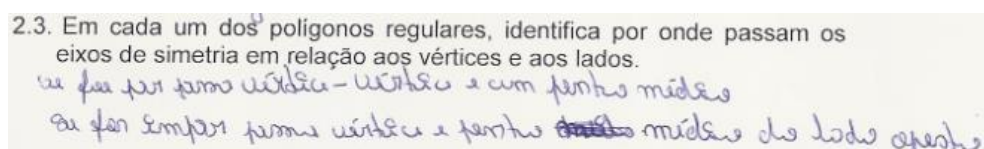 2.3. Em cada um dos polígonos regulares, identifica por onde passam os
eixos de simetria em relação aos vértices e aos lados.
se for par passa vértice - vértice e com ponto médio
se for ímpar passa vértice e ponto médio do lado oposto